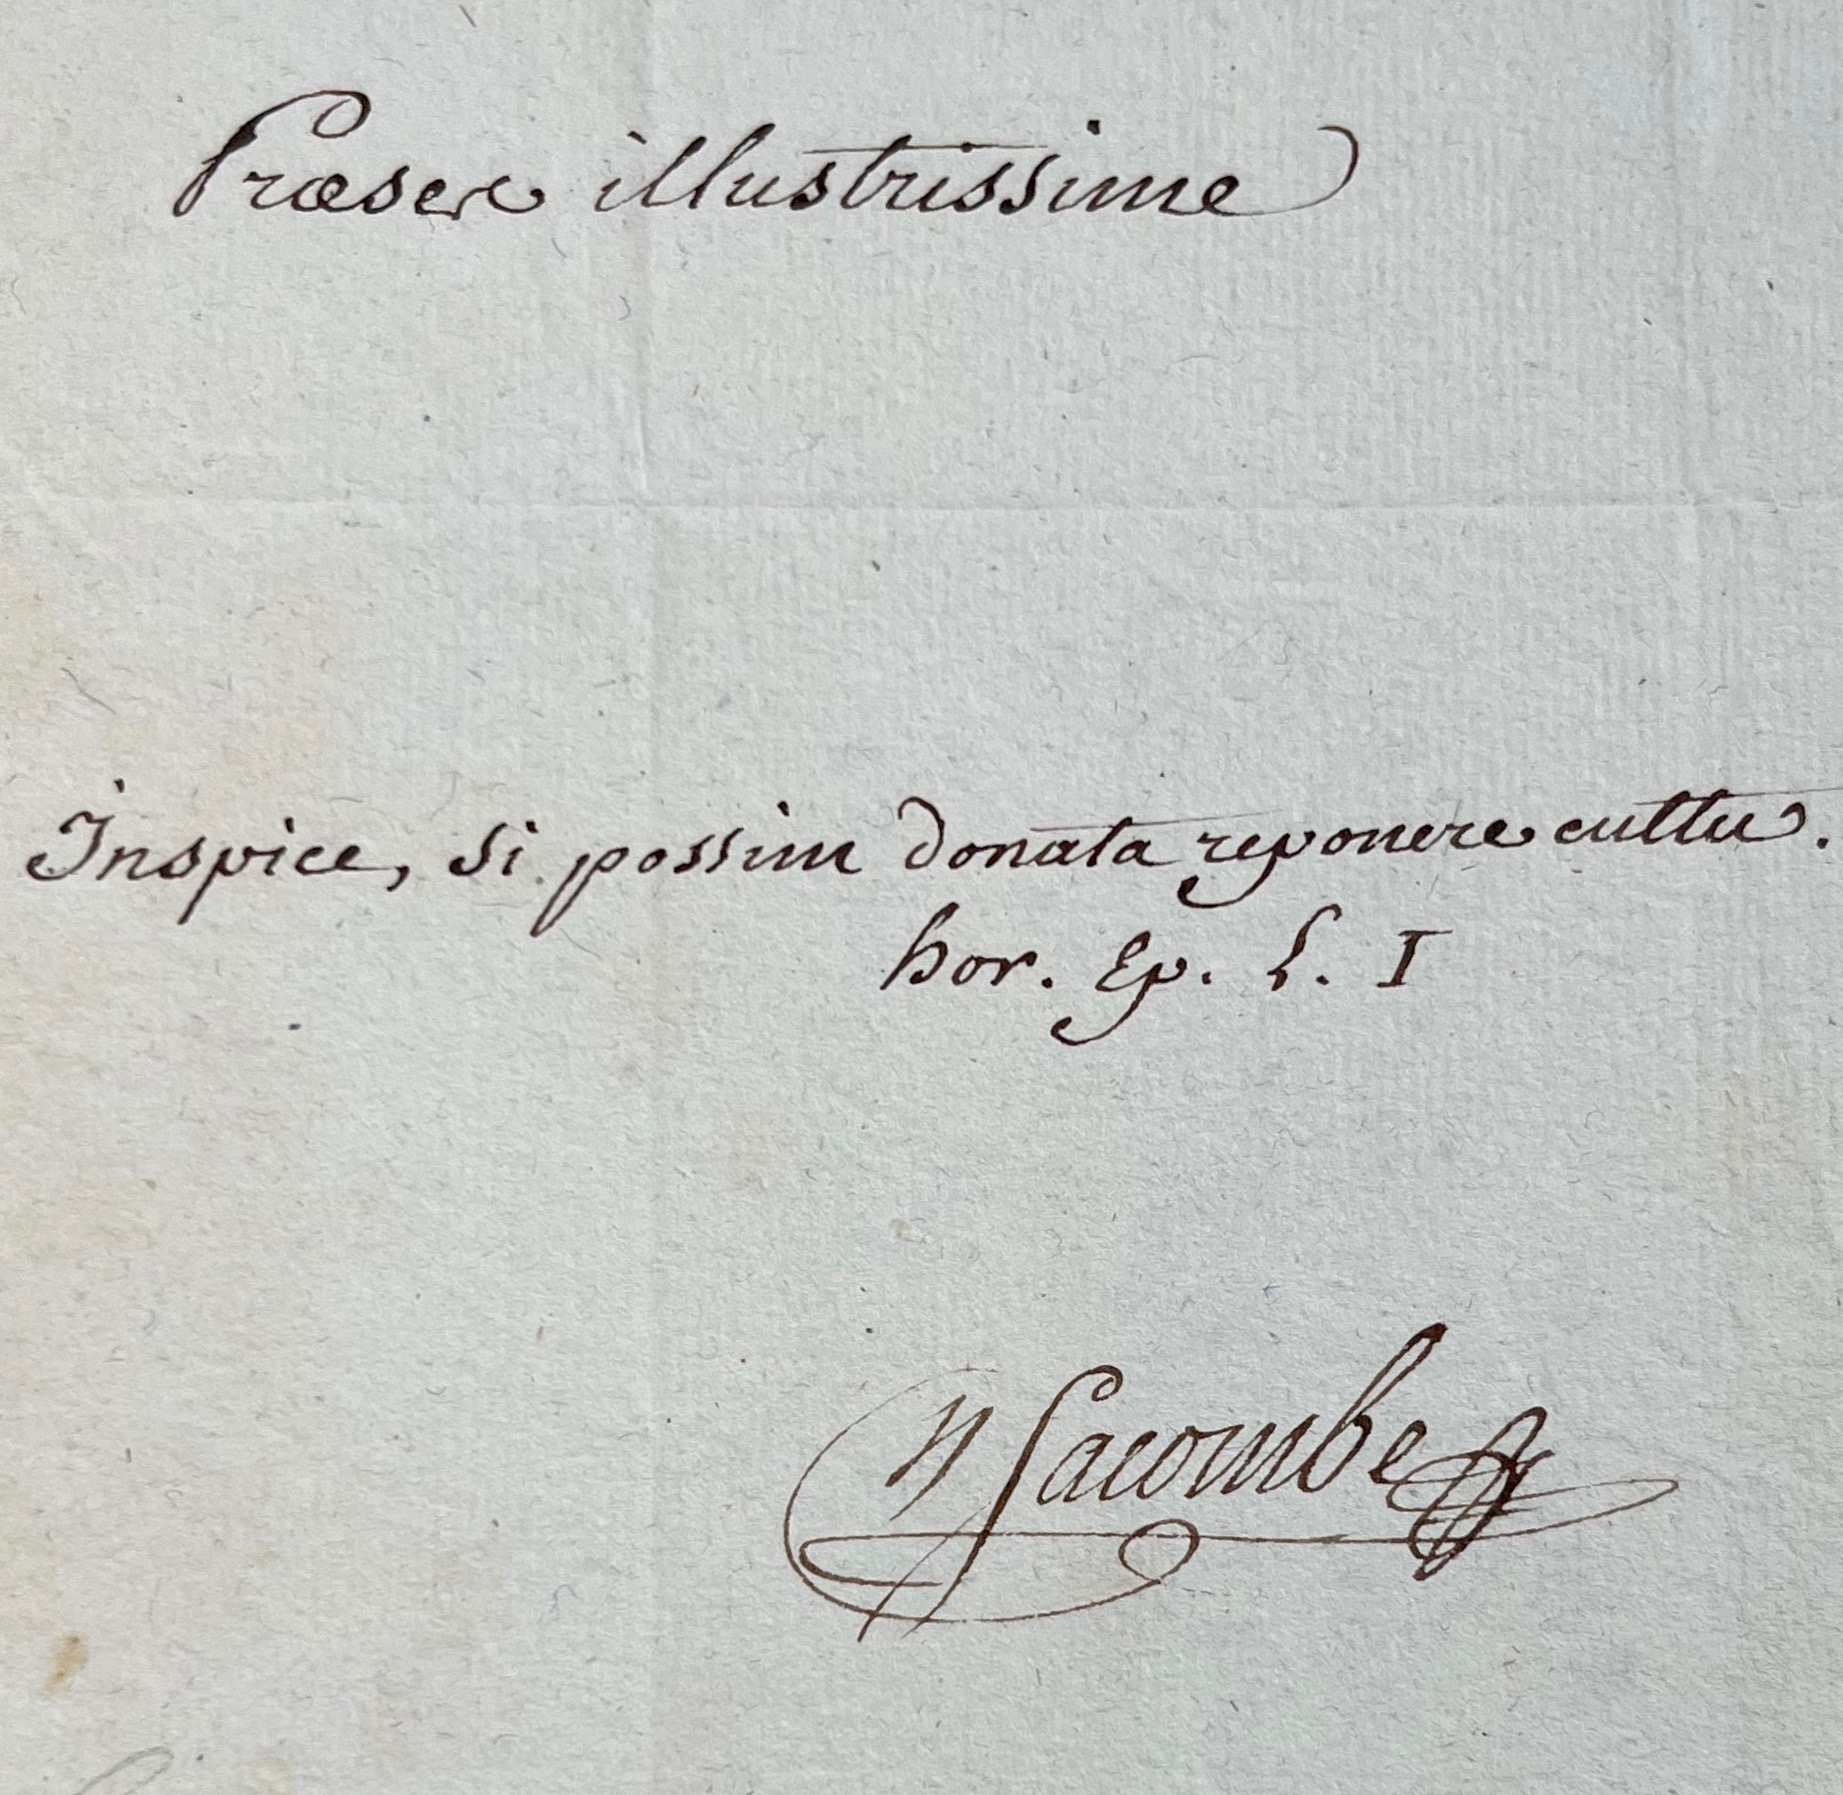 Præses illustrissime
Inspice, si possim donata reponere cultu.
hor. Ep. L. I
Lacombe